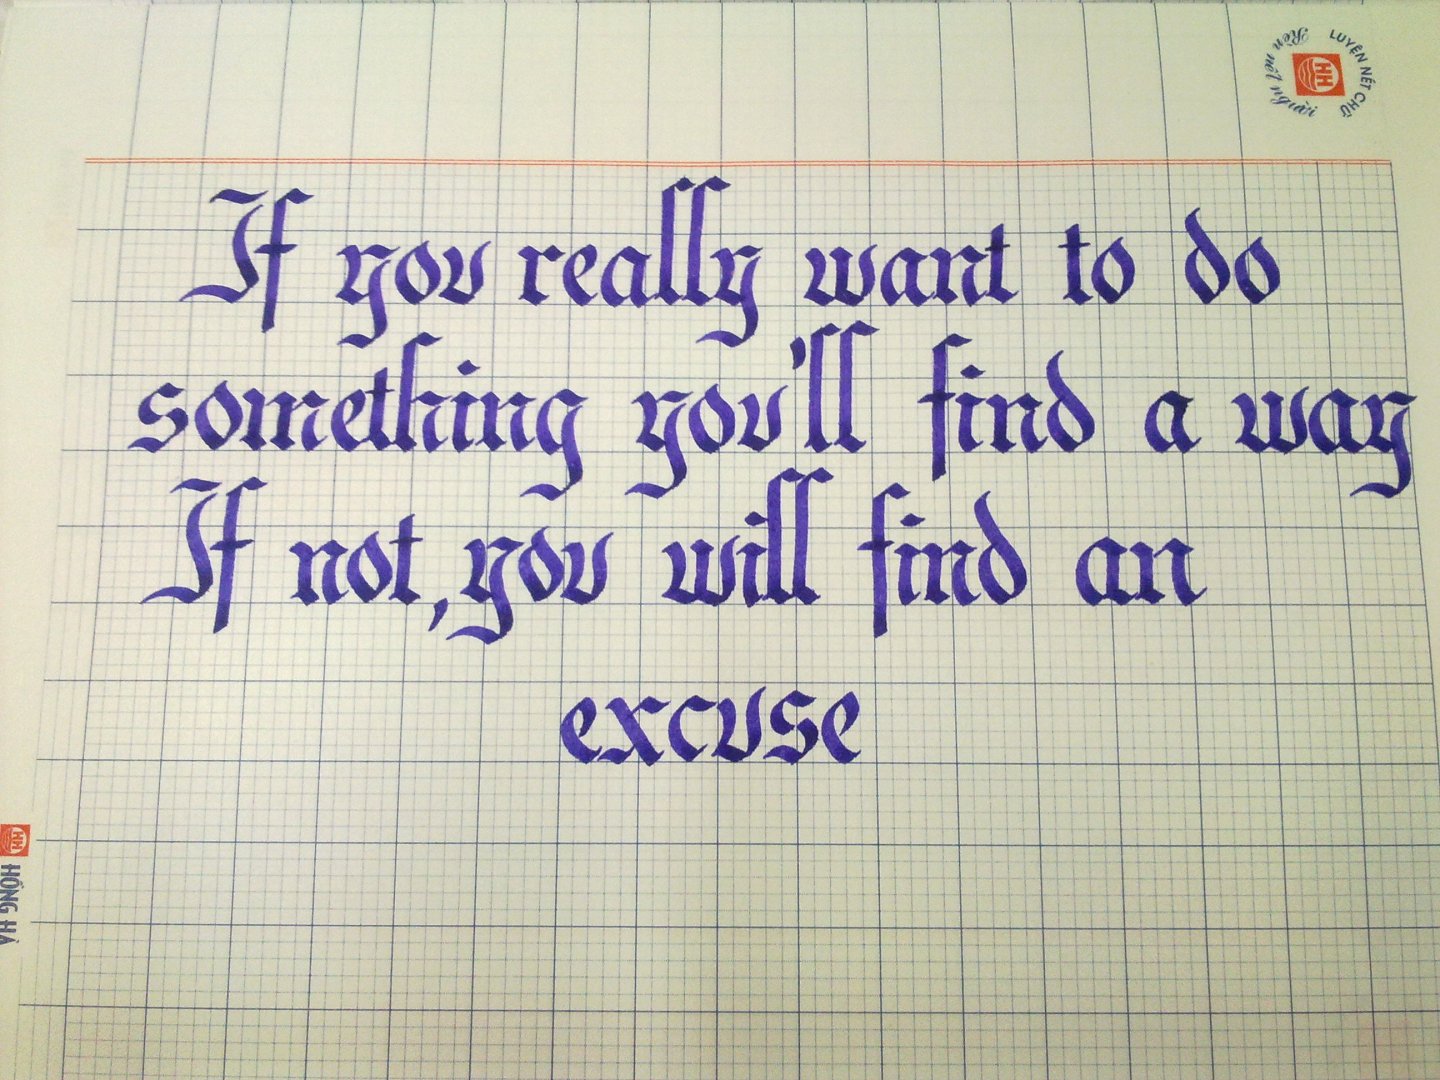 LUYỆN NÉT CHỮ
Rèn nết người
HH
If you really want to do
something you'll find a way
If not, you will find an
excuse
HH
HỒNG HÀ